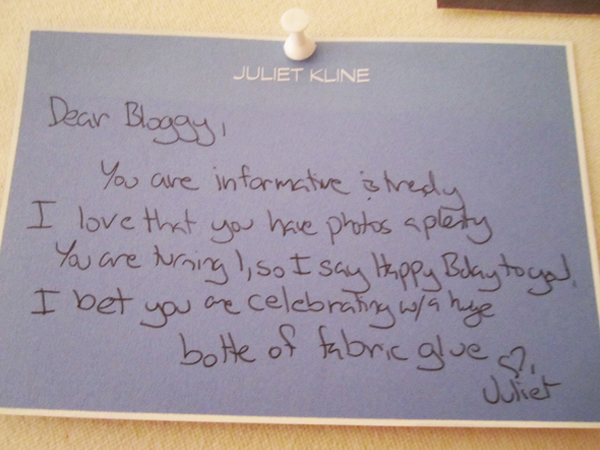 JULIET KLINE
Dear Bloggy,
You are informative & trendy
I love that you have photos aplenty
You are turning 1, so I say Happy Bday to you!
I bet you are celebrating w/a huge
bottle of fabric glue
♡,
Juliet